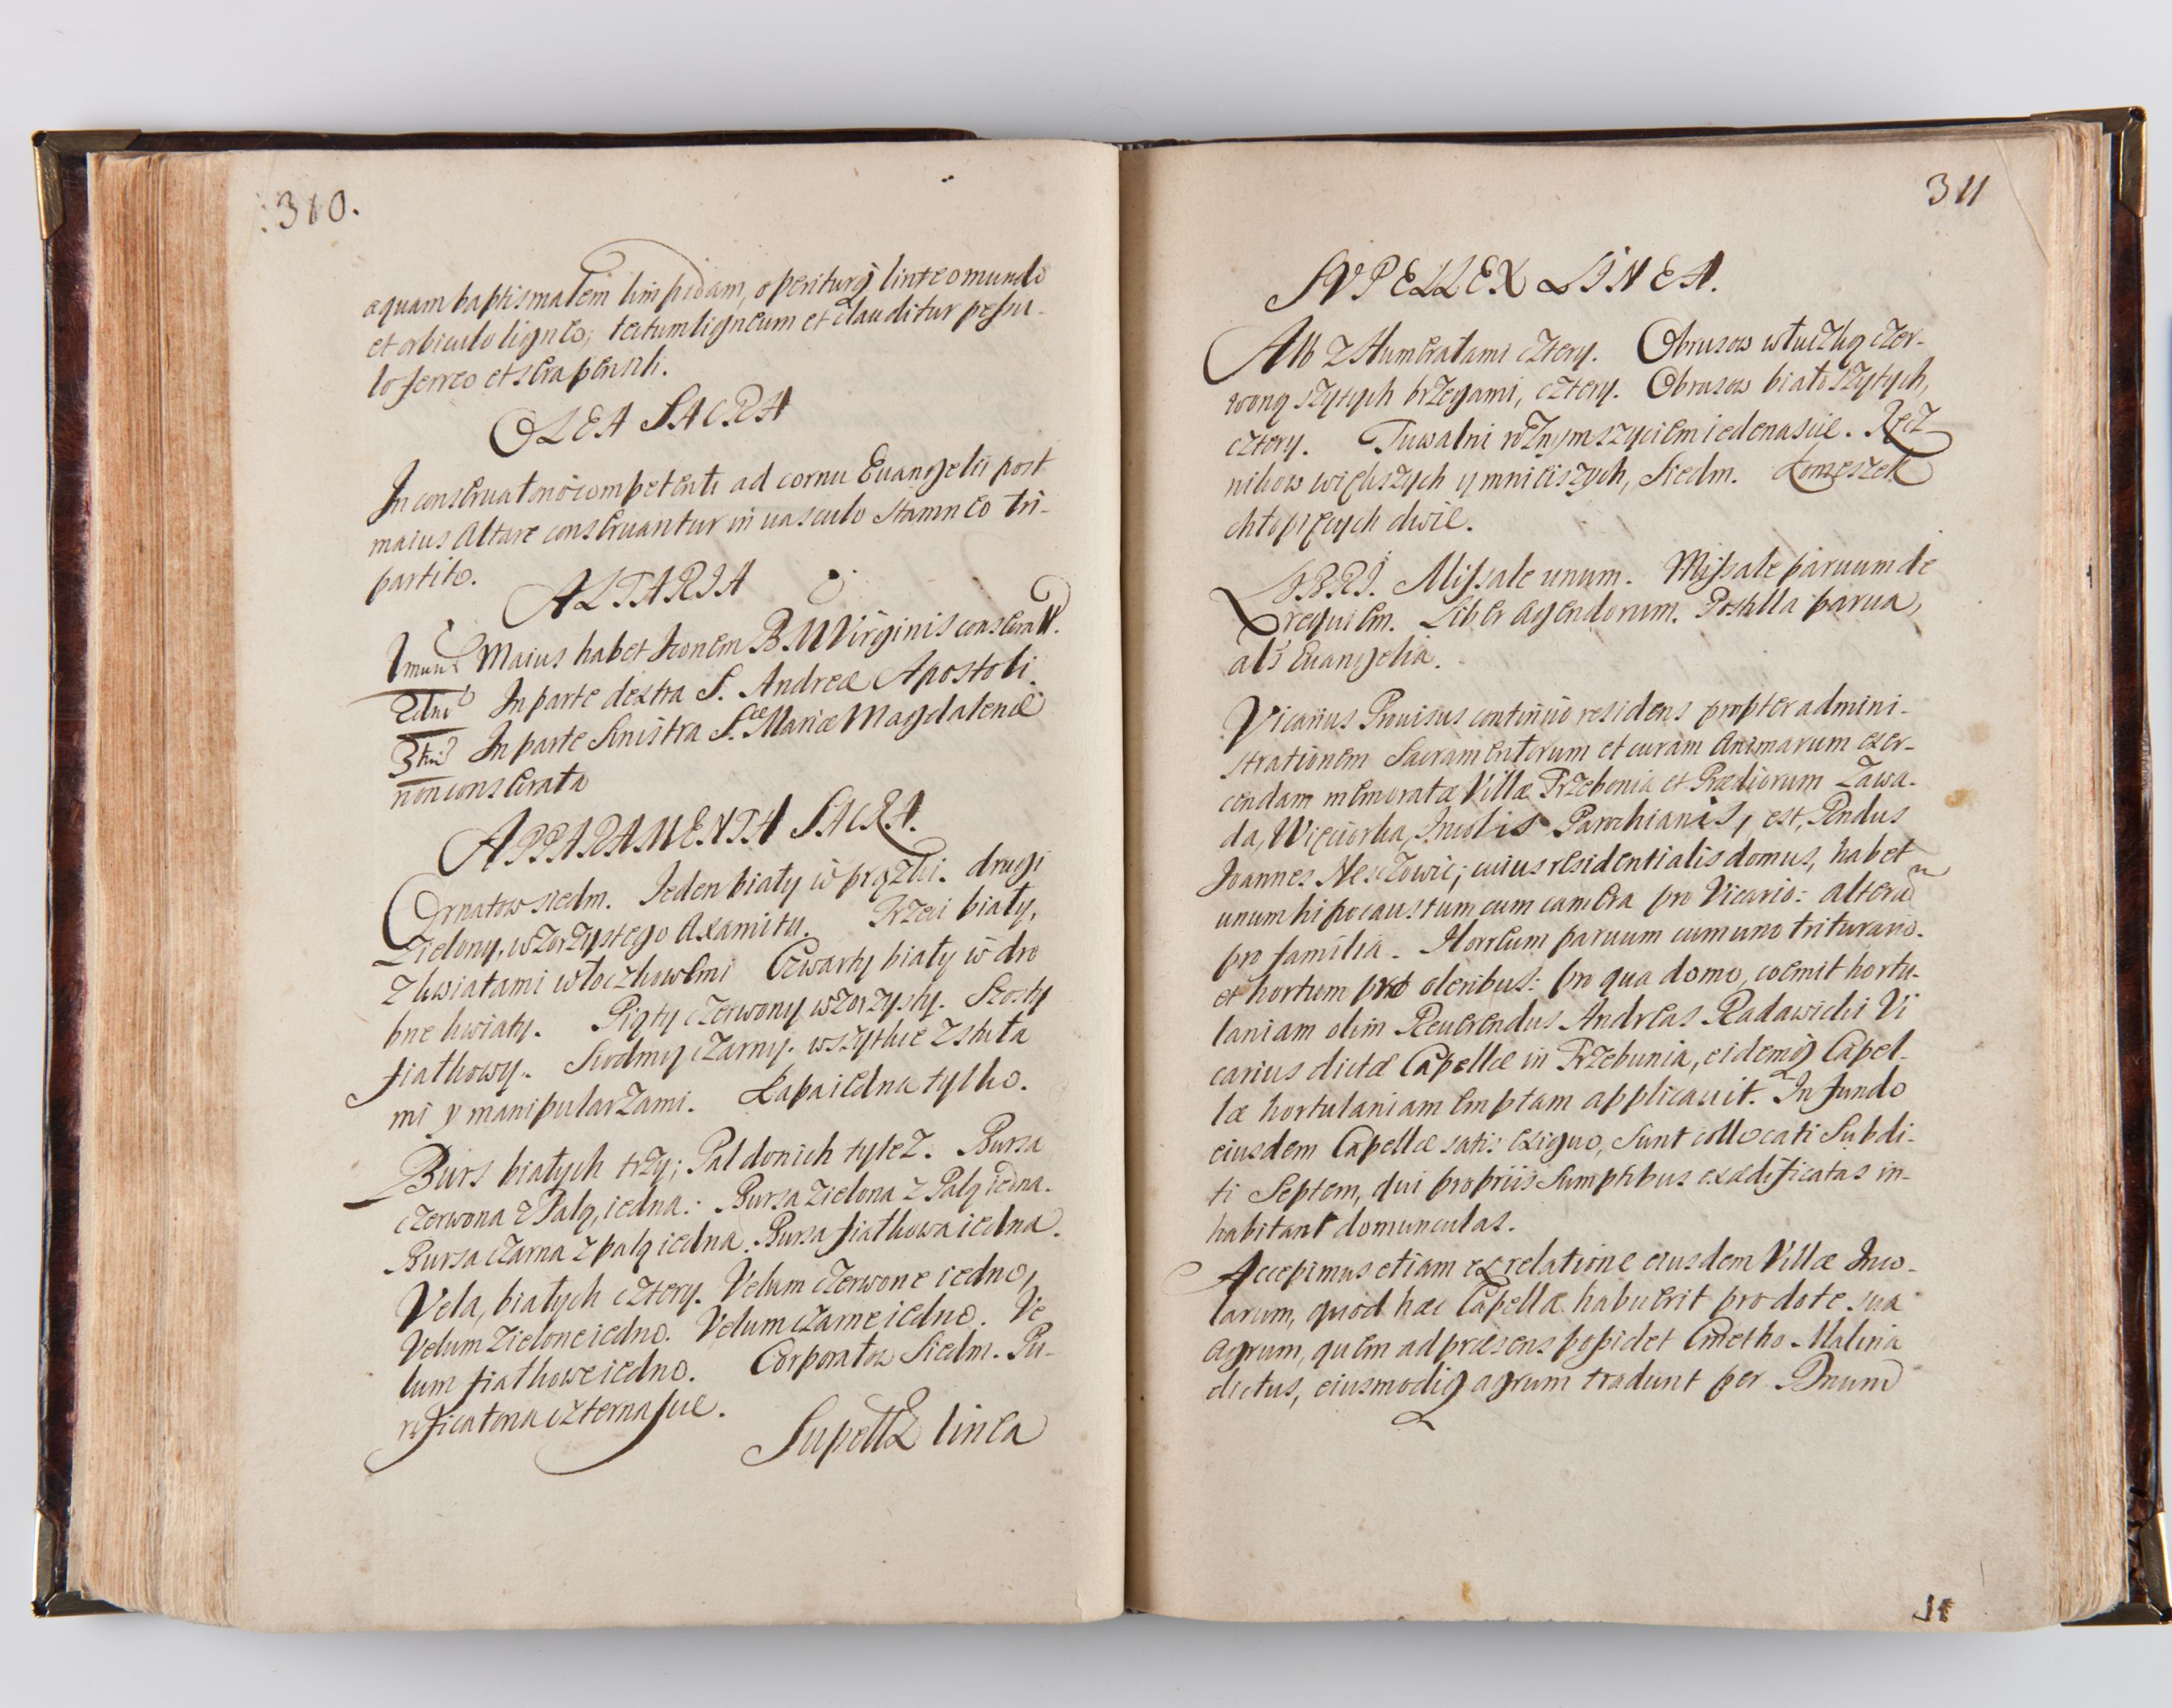 310.
aquam baptismalem limpidam, operiturq linteo mundo
et orbiculo ligneo; tectum ligneum et clauditur pessu-
lo ferreo et sera pensili.
OLEA SACRA
In conseruatorio competenti ad cornu Euangelii post
maius Altare conseruantur in uasculo stamneo tri-
partito.
ALTARIA
1mum Maius habet Iconem B. M Virginis consecrat.
2dum In parte dextra S. Andreæ Apostoli.
3tiu In parte sinistra S. Mariæ Magdalenæ
non consecrata
APPARAMENTA SACRA.
Ornatow siedm. Ieden biały w prążki. drugi
Zielony, wzorzystego Axamitu. Trzeci biały,
z kwiatami włoczkowemi Czwarty biały w dro
bne kwiaty. Piąty czerwony wzorzysty. Szosty
fiałkowy. Siodmy czarny. wszytkie z stuła
mi y manipularzami. Kapa iedna tylko.
Burs białych trzy; Pal do nich tyłez. Bursa
czerwona z Palą, iedna. Bursa zielona z Palą iedna.
Bursa czarna z palą iedna. Bursa fiałkowa iedna.
Vela, białych cztery. Velum czerwone iedno,
Velum Zielone iedno. Velum czarne iedno. Ve
lum fiałkowe iedno. Corporałow Siedm. Pu-
rificatoria czternascie.
Supellex linea
311
SVPELLEX LINEA.
Alb z Humerałami cztery. Obrusow włuczką czer-
woną szytych brzegami, cztery. Obrusow biało szytych,
cztery. Tuwalni rożnym szyciem iedenascie. Ręcz
nikow większych y mnieiszych, Siedm. Komeszek
chłopięcych dwie.
LIBRI. Missale unum. Missale paruum de
requiem. Liber Agendorum. Postilla parua,
als Euangelia.
Vicarius Prouisus continuo residens propter admini-
strationem Sacramentorum et curam Animarum exer-
cendam memoratæ Villæ Trzebonia et Prædiorum Zawa-
da, Więciorka, Incolis Parochianis, est, Rndus
Joannes; cuius residentialis domus, habet
unum hipocaustum cum camera pro Vicario: alteram
pro familia. Horreum paruum cum uno triturario.
et hortum pro oleribus: pro qua domo, coemit hortu-
laniam olim Reuerendus Andreas Radawicki Vi
carius dictæ Capellæ in Trzebunia, eidemq Capel-
læ hortulaniam emptam applicauit. In fundo
eiusdem Capellæ satis exiguo, sunt collocati Subdi-
ti Septem, qui propriis sumptibus exædificatas in-
habitant domunculas.
Accepimus etiam ex relatione eiusdem Villæ Inco-
larum, quod hæc Capella habuerit pro dote sua
Agrum, quem ad præsens possidet Cmetho Malina
dictus, eiusmodiq agrum tradunt per Dnum